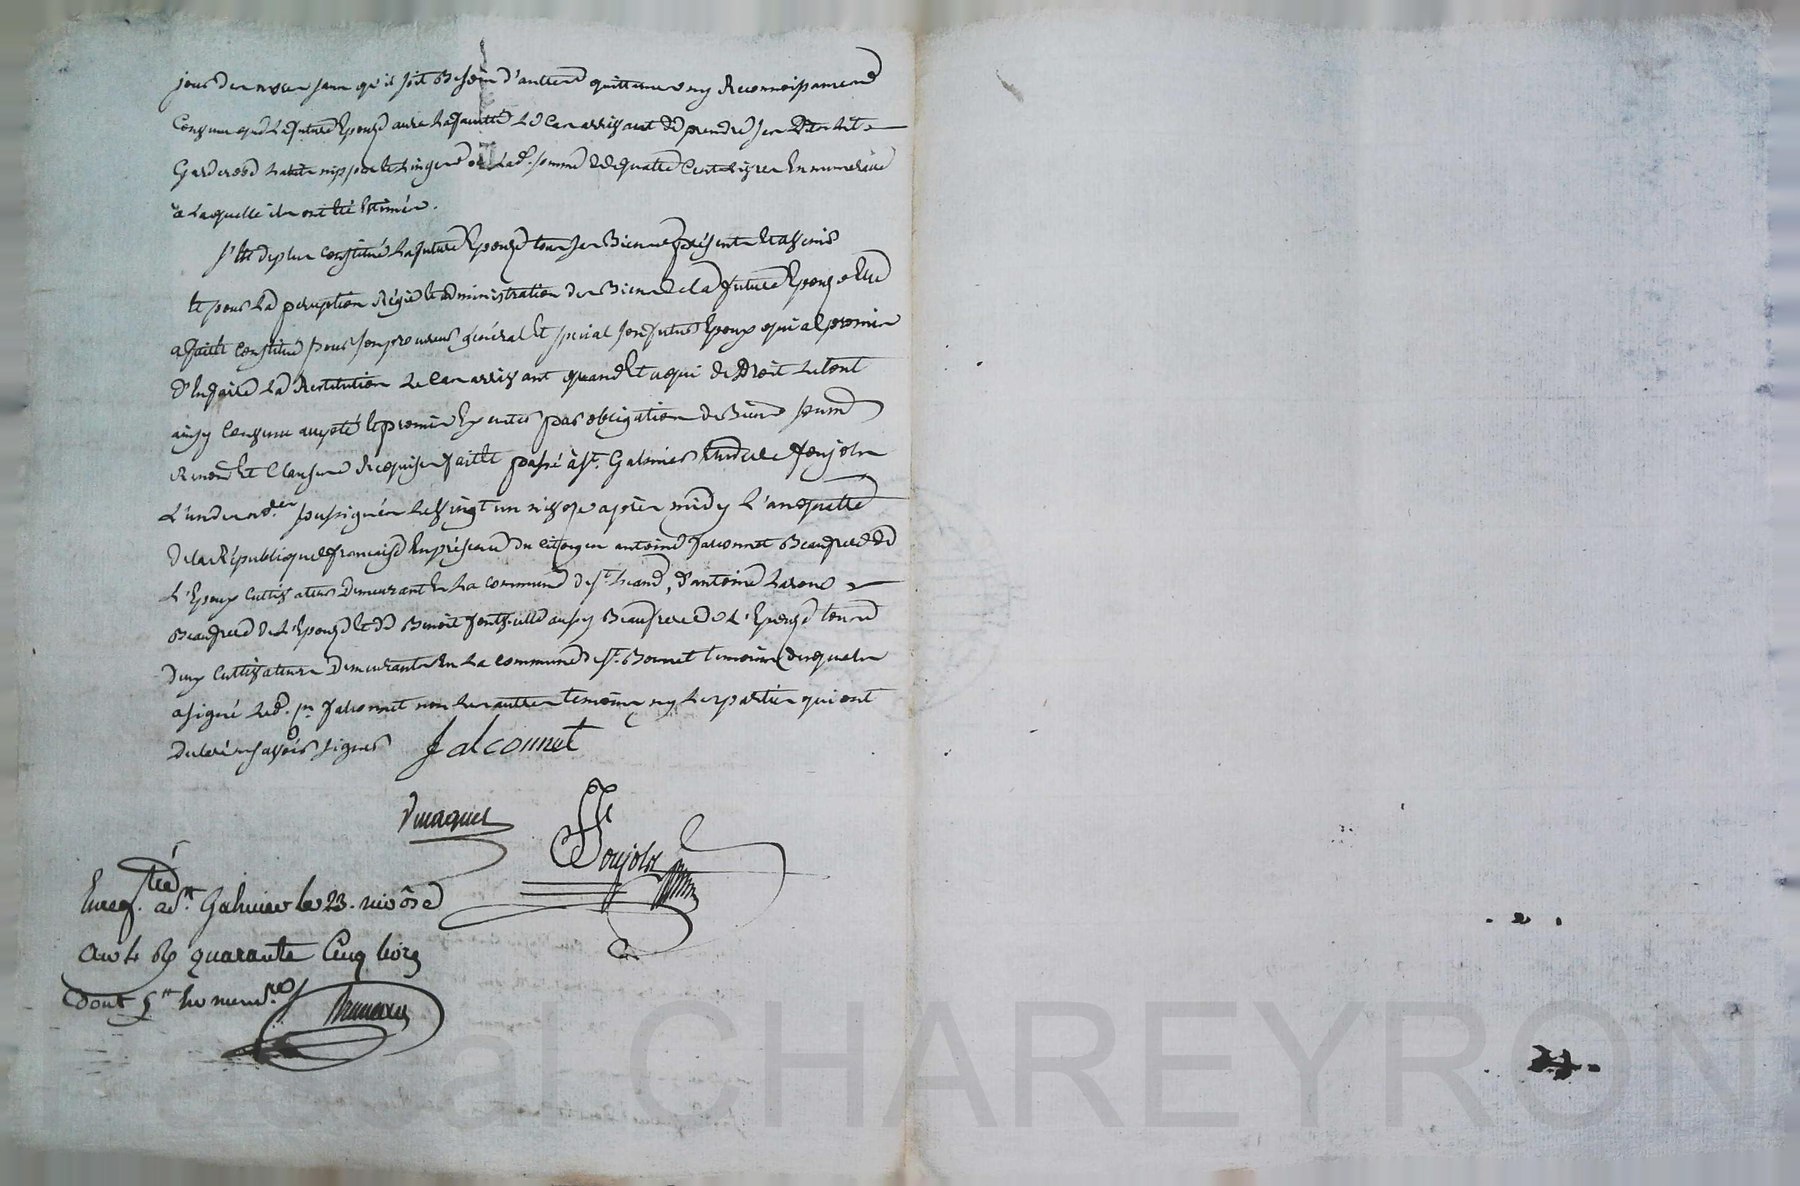 jour des noces sans qu'il soit besoin d'autre quittance ny Reconnoissance
Convenu que la future Epouze aura la faculté le cas arrivant de prendre ses dits lit
Garderobe habits nippes et linge ou lad. somme de quatre cent livres En numéraire
a laquelle ils ont été Estimés.
S'Est de plus constitué la future Epouze tous ses Biens présents et avenir
Et pour la perception Régie et administration des Biens de la future Epouze Elle
a fait et constitué pour son procureur général Et spécial son futur Epoux qui a promis
d'En faire la Restitution le cas arrivant quand Et a qui de Droit le tout
ainsy convenu accepté et promis Exécuter par obligation de Biens soumo
Renond Et Clausure Requises fait et passé à St. Galmier Etude de Soujols
L'un des nres soussignés le vingt un nivose après midy L'an quatre
de la République francaise En présence du citoyen antoine falconnet Beaufrere de
L'Epoux cultivateur demeurant En la commune de St. heand, d'antoine
Beaufrere de L'Epouze et de Benoit aussy Beaufrere de L'Epouze tous
deux cultivateurs demeurants En la commune de St. Bonnet temoins desquels
a signé led. falconnet non les autres temoins ny les parties qui ont
déclaré ne savoir signer falconnet
Soujols
Enregtré a St. Galmier le 23. nivôse
an 4 Rs quarante Cinq livres
dont en numre
Pascal CHAREYRON